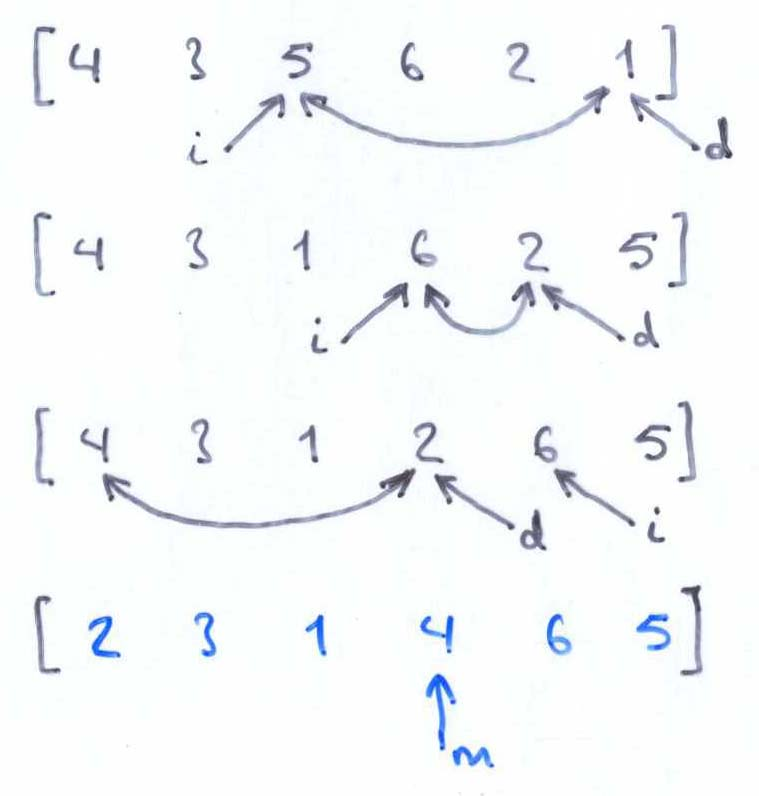 [ 4 3 5 6 2 1 ]
i d
[ 4 3 1 6 2 5 ]
i d
[ 4 3 1 2 6 5 ]
d i
[ 2 3 1 4 6 5 ]
m